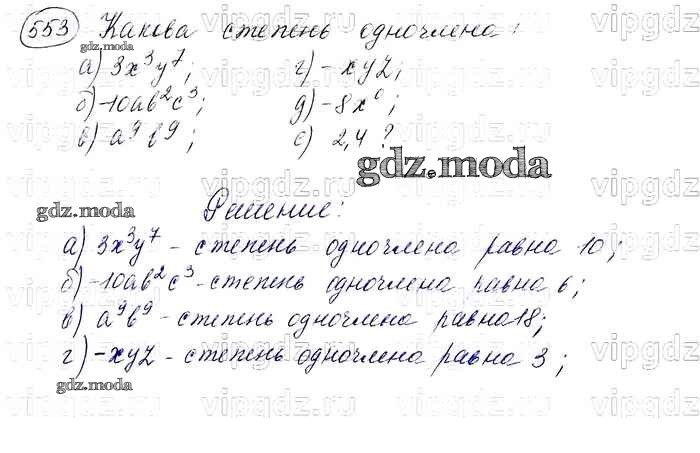 553 Какова степень одночлена:
gdz.moda
а) 3x³y⁷; г) -xyz;
б) -10ab²c³; д) -8x⁰;
в) a⁹b⁹; е) 2,4?
gdz.moda
gdz.moda
Решение:
а) 3x³y⁷ - степень одночлена равна 10;
б) -10ab²c³ - степень одночлена равна 6;
в) a⁹b⁹ - степень одночлена равна 18;
г) -xyz - степень одночлена равна 3;
gdz.moda